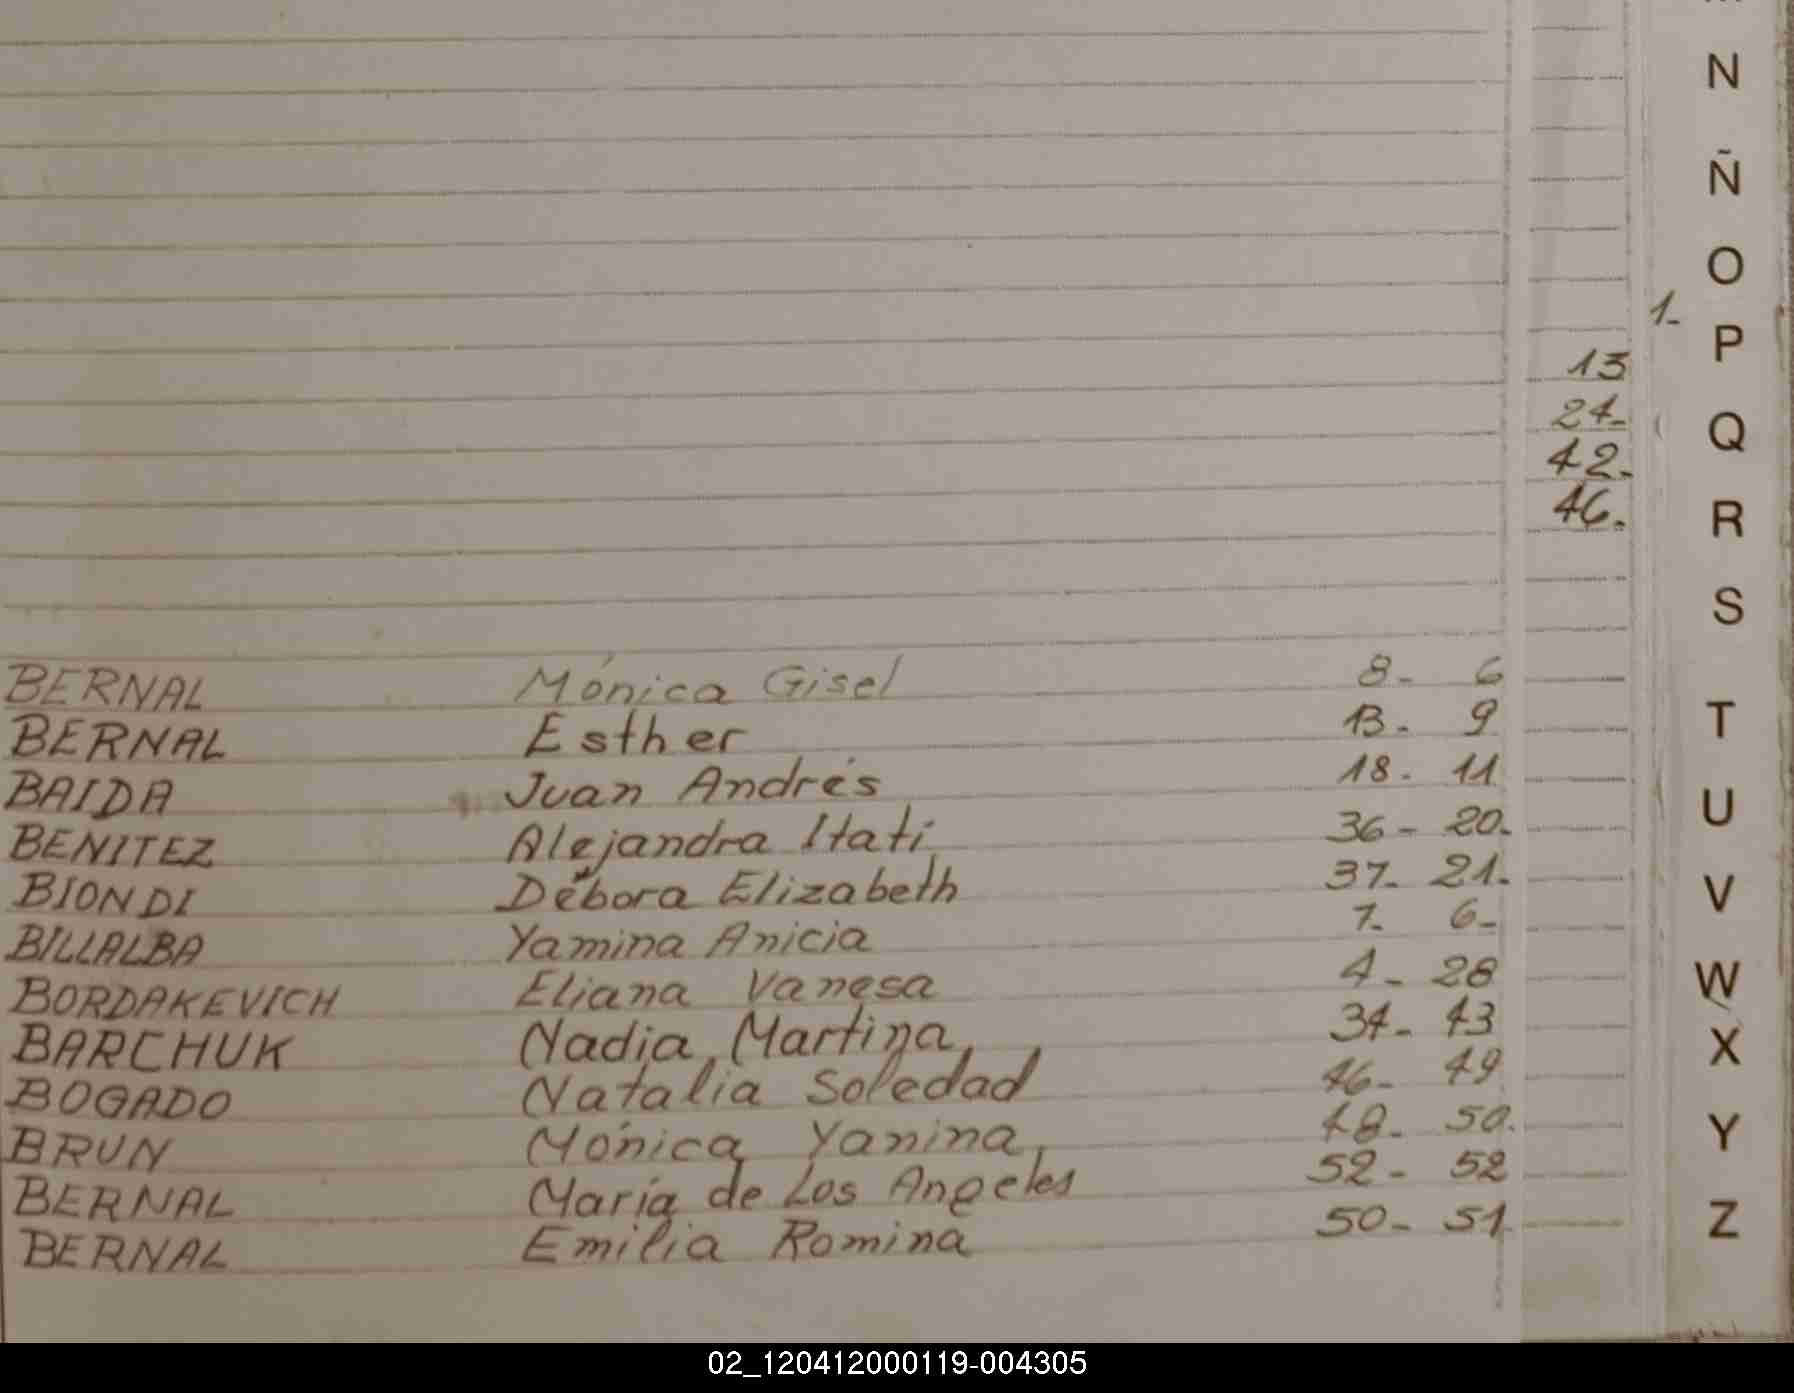 N
Ñ
O
1-
P
13
24-
Q
42-
46.
R
S
BERNAL Mónica Gisel 8- 6
BERNAL Esther 13- 9
T
BAIDA Juan Andrés 18. 11
U
BENITEZ Alejandra Itatí 36- 20-
BIONDI Débora Elizabeth 37- 21.
V
BILLALBA Yamina Anicia 7- 6-
BORDAKEVICH Eliana Vanesa 4- 28
W
BARCHUK Nadia Martina 34- 43
X
BOGADO Natalia Soledad 46- 49
BRUN Mónica Yanina 48- 50.
Y
BERNAL María de Los Angeles 52- 52
BERNAL Emilia Romina 50- 51
Z
02_120412000119-004305